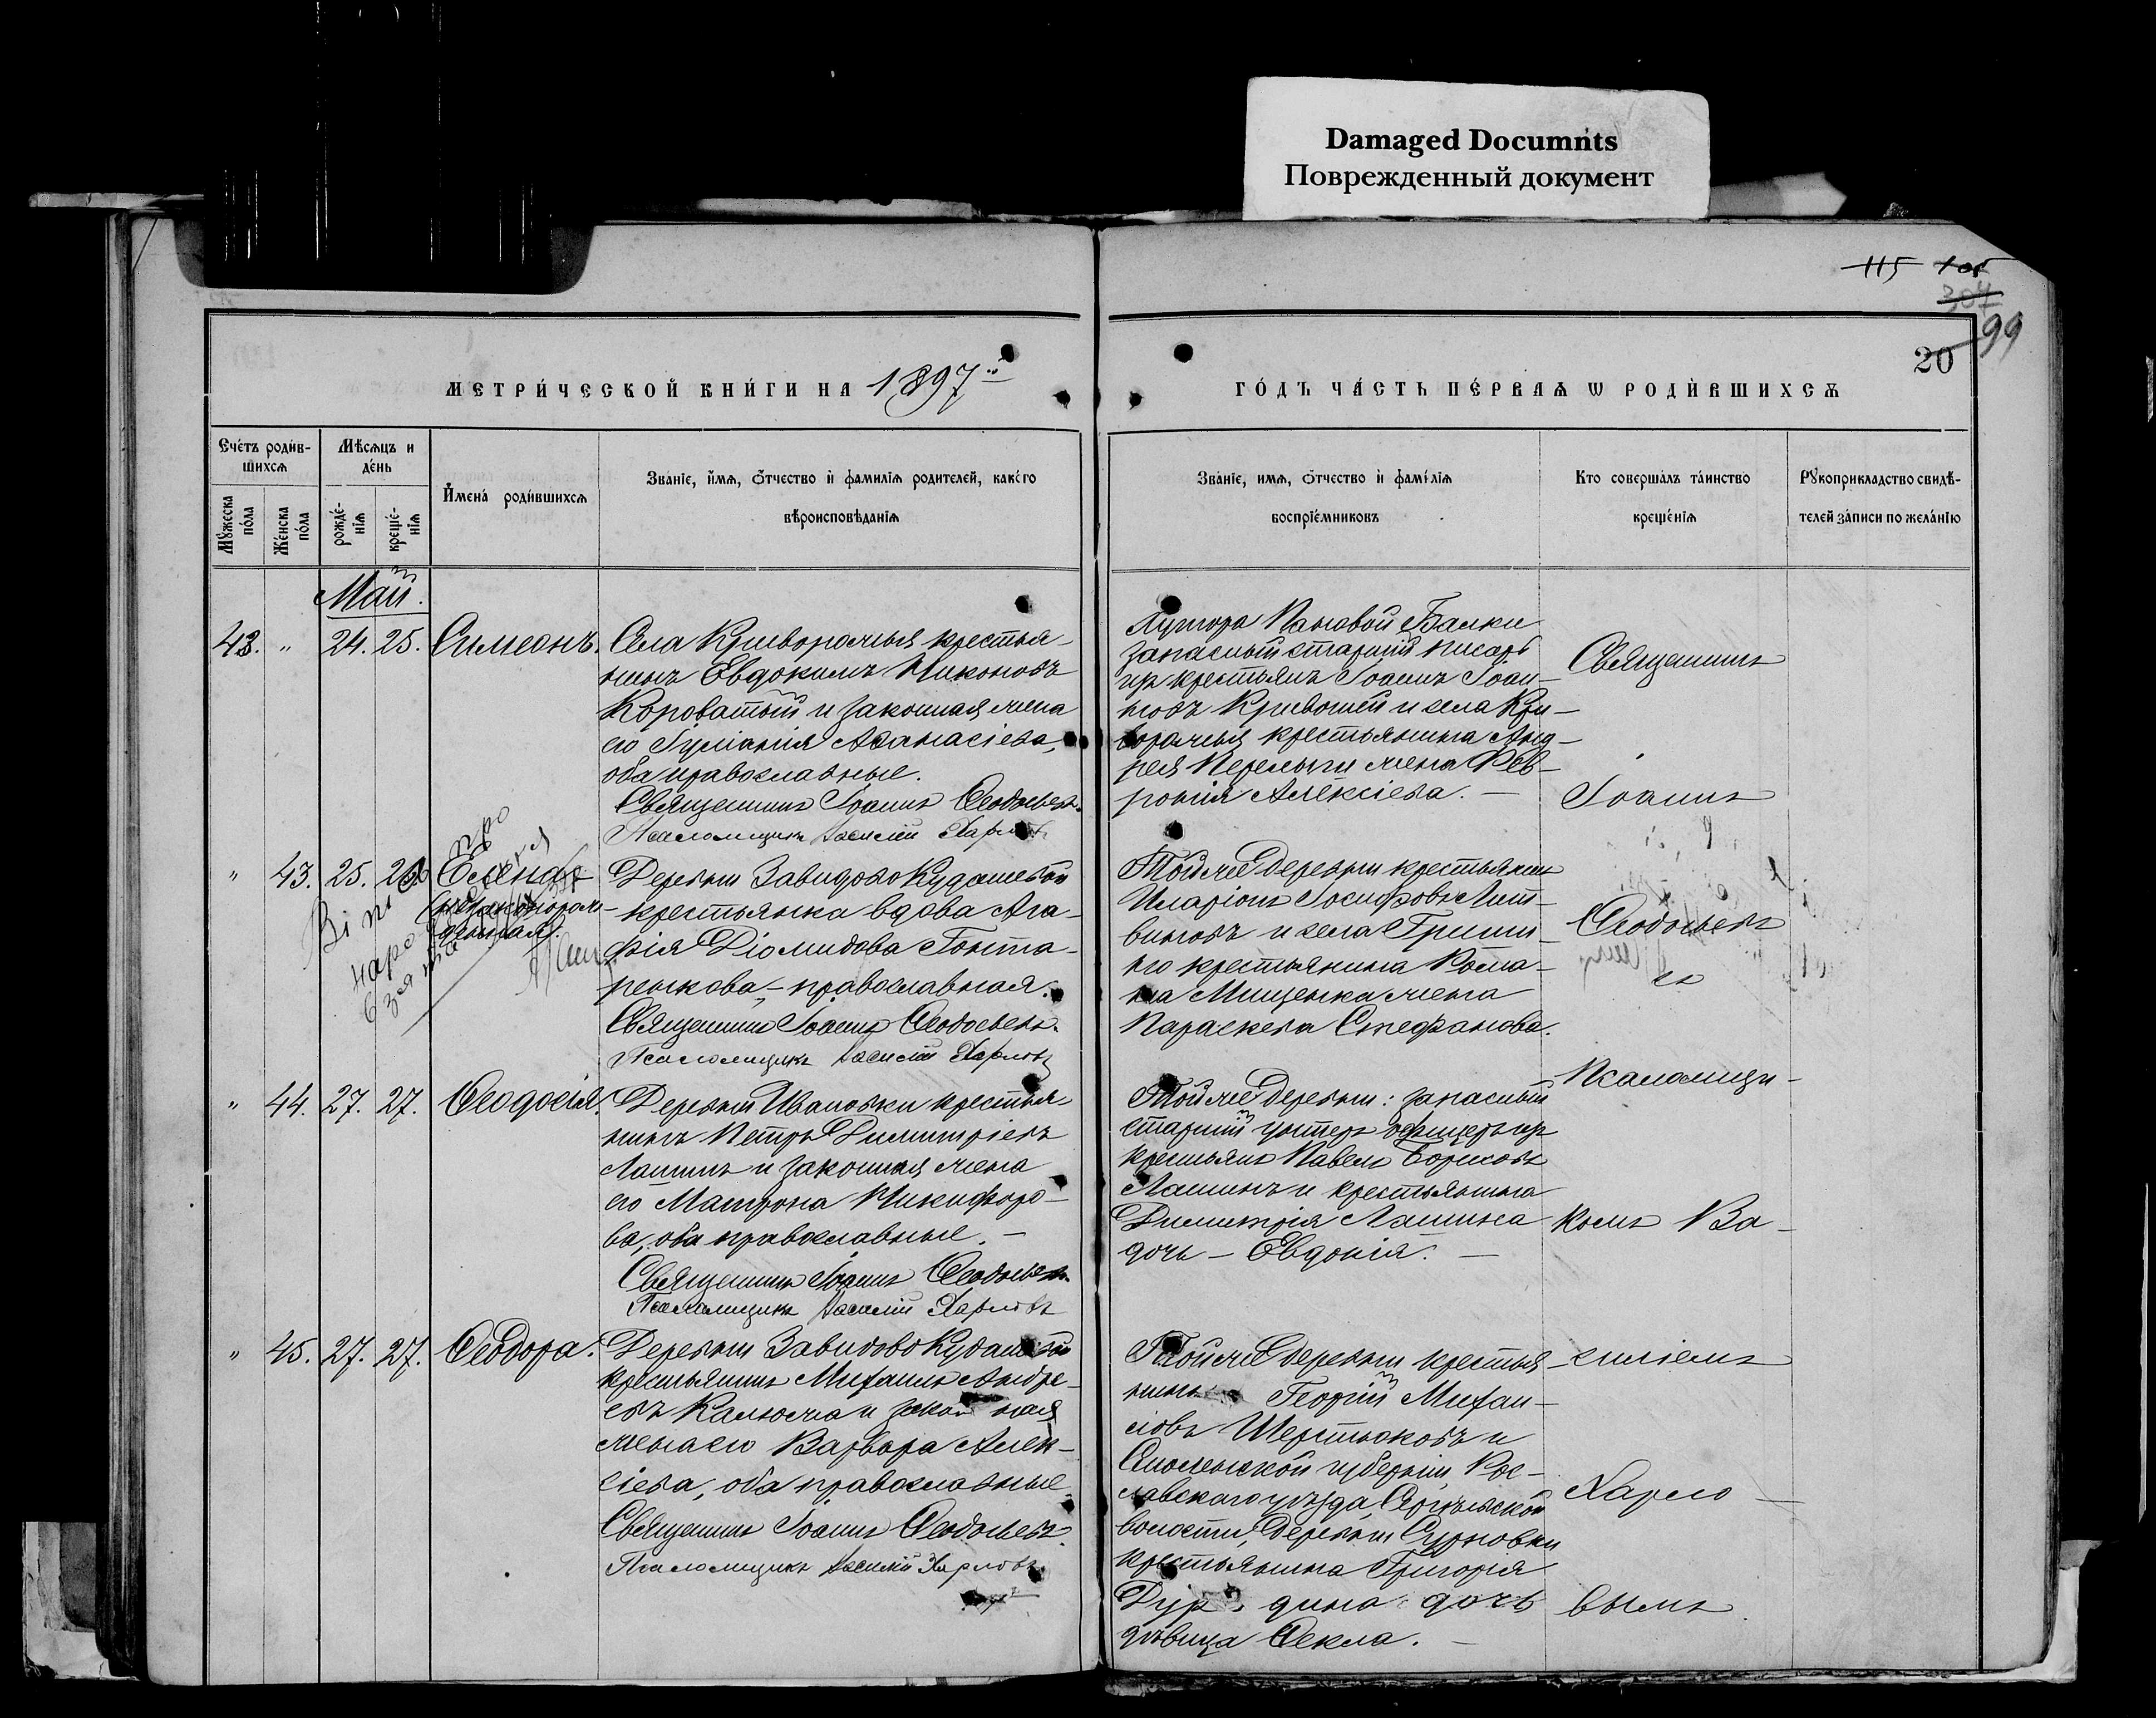 Damaged Documnts
Поврежденный документ
115 105
304
99
20
МЕТРИ́ЧЕСКОЙ КНИ́ГИ НА 1897ій
ГО́ДЪ ЧА́СТЬ ПЕ́РВАѦ Ѡ РОДИ́ВШИХСѦ
Сче́тъ роди́в-
шихсѧ
Мѣ́сѧцъ и
де́нь
Мꙋ́жеска
по́ла
Же́нска
по́ла
рожде́-
нїѧ
креще́-
нїѧ
И҆мена́ роди́вшихсѧ
Зва́нїе, и҆́мѧ, ѻ҆́тчество и҆ фами́лїѧ роди́телей, како́го
вѣроисповѣ́данїѧ
Зва́нїе, и҆мѧ, ѻ҆́тчество и҆ фамі́лїѧ
воспрїе́мниковъ
Кто соверша́лъ та́инство
креще́нїѧ
Рꙋкоприкла́дство свидѣ́-
телей за́писи по жела́нїю
Май.
43. " 24. 25. Симеонъ.
Села Криворожья крестья-
нинъ Евдокимъ Никоновъ
Короватый и законная жена
его Іуліанія Аѳанасіева,
оба православные.
Священникъ Іоаннъ Ѳеодосьевъ.
Псаломщикъ Василій Харловъ
Хутора Пановой Балки
запасный старшій писарь
изъ крестьянъ Іоаннъ Іоан-
новъ Кривошей и села Кри-
ворожья крестьянина Анд-
рея жена Фев-
ронія Алексіева. —
" 43. 25. 26. Елена
(незаконорож-
денная).
Деревни Завидово Кудашевой
крестьянка вдова Ага-
фія Діомидова Гонта-
ренкова, – православная.
Священникъ Іоаннъ Ѳеодосьевъ.
Псаломщикъ Василій Харловъ
Той же деревни крестьянинъ
Иларіонъ Іосифовъ Лит-
виновъ и села Гриши-
но крестьянина Рома-
на Мищенка жена
Параскева Стефанова.
" 44. 27. 27. Ѳеодосія.
Деревни Ивановки крестья-
нинъ Петръ Димитріевъ
Лашинъ и законная жена
его Матрона Никифоро-
ва, оба православные. —
Священникъ Іоаннъ Ѳеодосьевъ.
Псаломщикъ Василій Харловъ
Той же деревни: запасный
старшій унтеръ офицеръ изъ
крестьянъ Павелъ Борисовъ
Лашинъ и крестьянина
Димитрія Лашина
дочь – Евдокія. —
" 45. 27. 27. Ѳеодора.
Деревни Завидово Кудашевой
крестьянинъ Михаилъ Андре-
евъ Калюжа и законная
жена его Варвара Алек-
сіева, оба православные.
Священникъ Іоаннъ Ѳеодосьевъ.
Псаломщикъ Василій Харловъ.
Той же деревни крестья-
нинъ Георгій Михаи-
ловъ Шерстюковъ и
Смоленской губерніи, Рос-
лавского уѣзда,
волости, деревни
крестьянина Григорія
дочь
дѣвица Ѳекла. —
Священникъ
Іоаннъ
Ѳеодосьевъ
съ
Псаломщи-
комъ Ва-
силіемъ
Харло-
вымъ